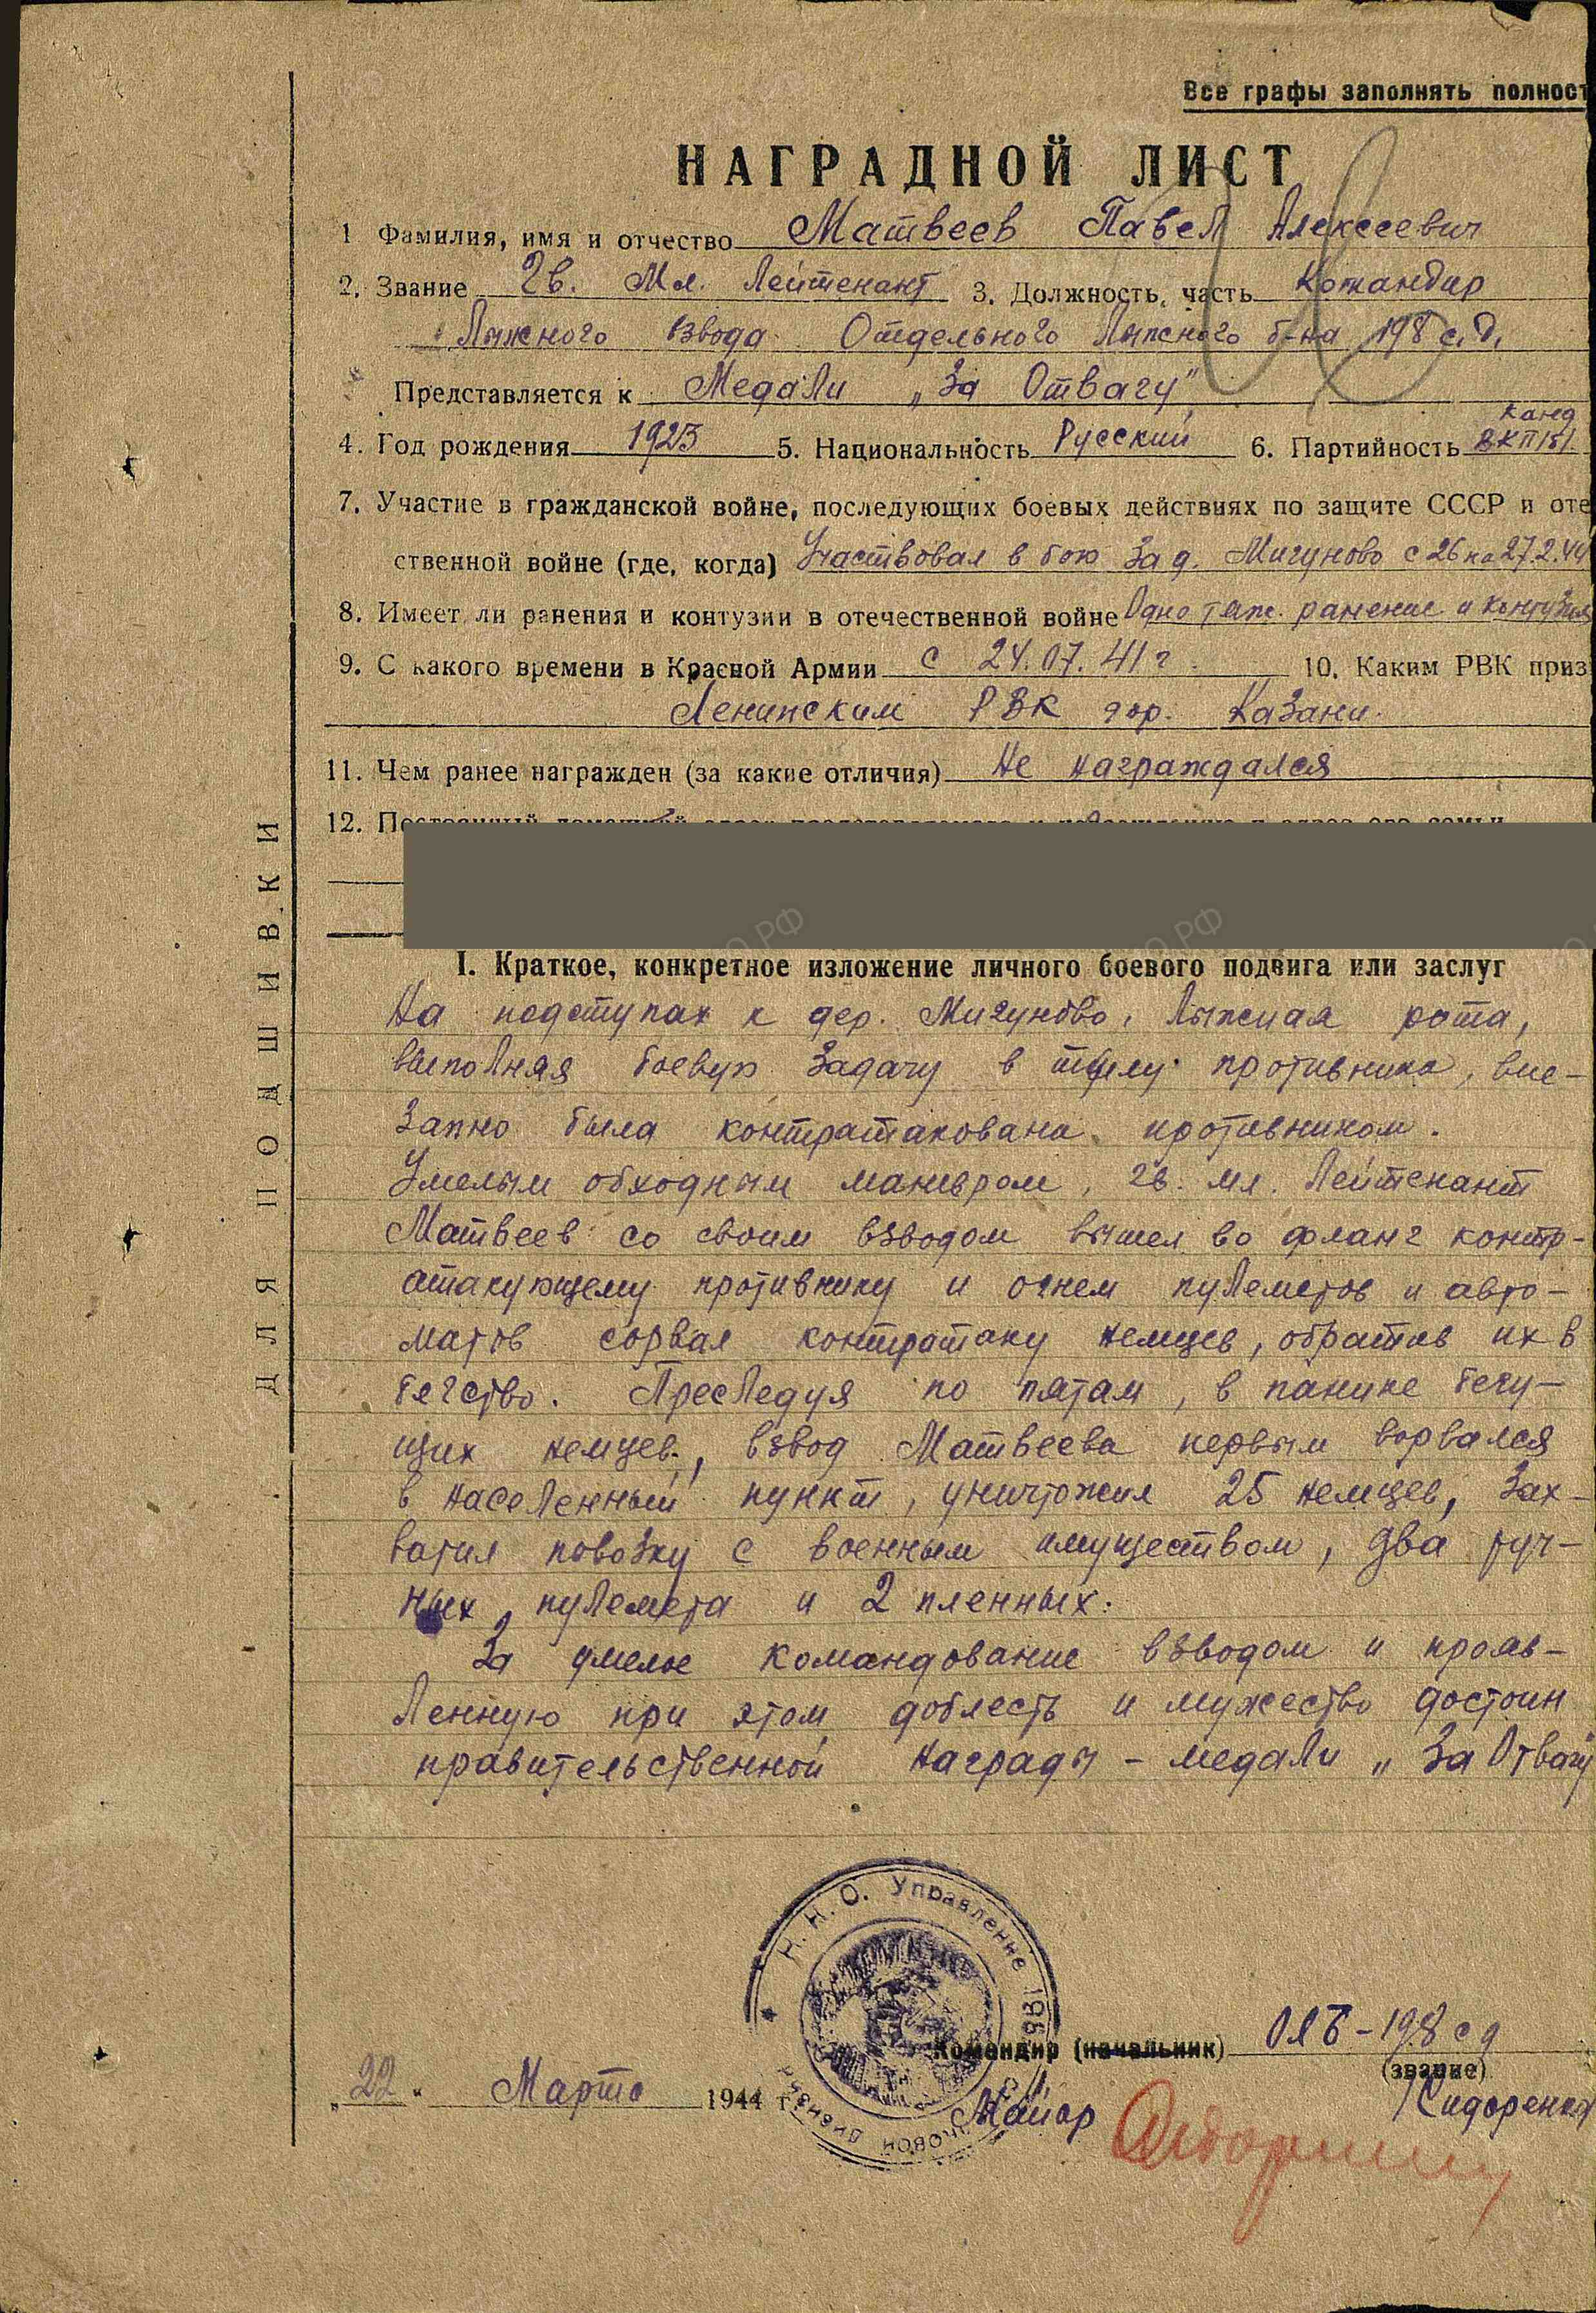 Все графы заполнять полност
НАГРАДНОЙ ЛИСТ
1 Фамилия, имя и отчество Матвеев Павел Алексеевич
2. Звание Гв. Мл. Лейтенант 3. Должность, часть Командир
Лыжного взвода Отдельного Лыжного б-на 198 с.д.
Представляется к Медали „За Отвагу"
канд
4. Год рождения 1923 5. Национальность Русский 6. Партийность ВКП/б/
7. Участие в гражданской войне, последующих боевых действиях по защите СССР и оте
ственной войне (где, когда) Участвовал в бою за д. Мигуново с 26 по 27.2.44
8. Имеет ли ранения и контузии в отечественной войне Одно тяж. ранение и контузия
9. С какого времени в Красной Армии с 24.07.41 г. 10. Каким РВК приз
Ленинским РВК гор. Казани.
11. Чем ранее награжден (за какие отличия) Не награждался
12.
ДЛЯ ПОДШИВКИ
I. Краткое, конкретное изложение личного боевого подвига или заслуг
На подступах к дер. Мигуново, Лыжная рота,
выполняя боевую задачу в тылу противника, вне-
запно была контратакована противником.
Умелым обходным маневром, гв. мл. Лейтенант
Матвеев со своим взводом вышел во фланг контр-
атакующему противнику и огнем пулеметов и авто-
матов сорвал контратаку немцев, обратив их в
бегство. Преследуя по пятам, в панике бегу-
щих немцев, взвод Матвеева первым ворвался
в населенный пункт, уничтожил 25 немцев, зах-
ватил повозку с военным имуществом, два руч-
ных пулемета и 2 пленных.
За умелое командование взводом и прояв-
ленную при этом доблесть и мужество достоин
правительственной награды – медали „За Отвагу
Н.К.О. Управление 198 стрелковой дивизии
Командир (начальник) ОЛБ-198 сд
(звание)
„22" Марта 1944 г.
Майор Сидоренко